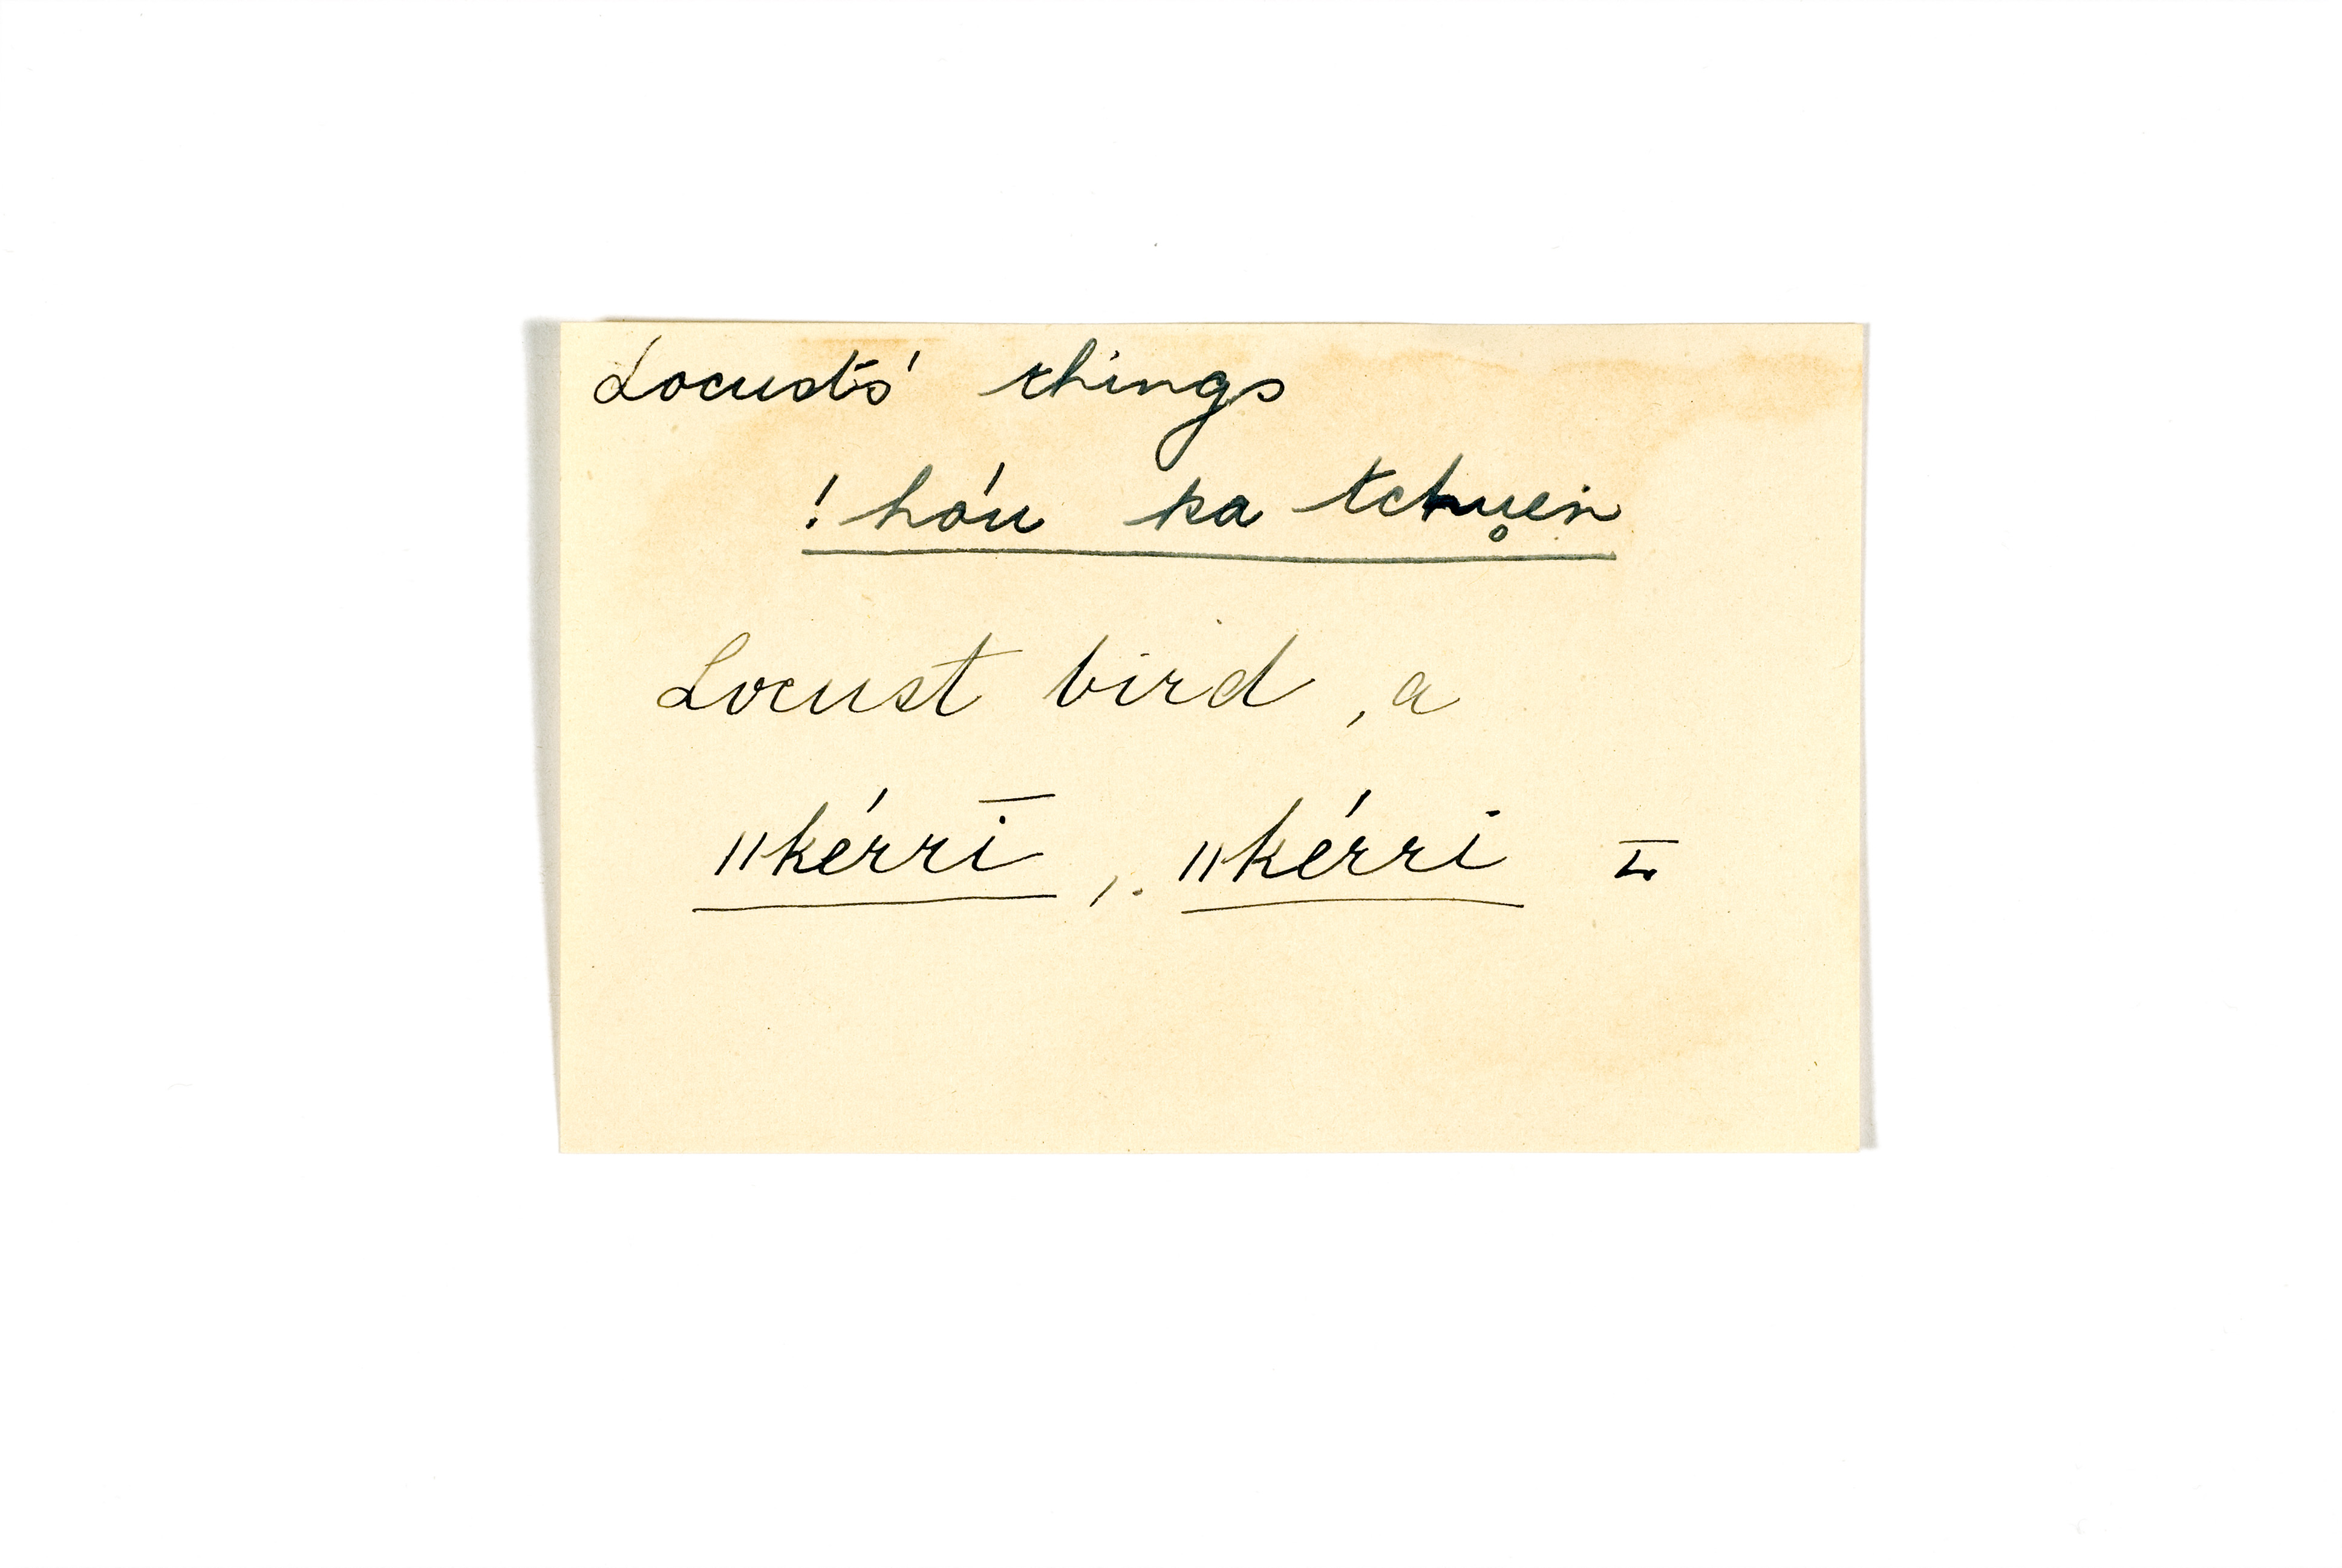 Locusts' things
!hóu ka tchu̥en
Locust bird, a
ǁkérri̅, ǁkérri L̅